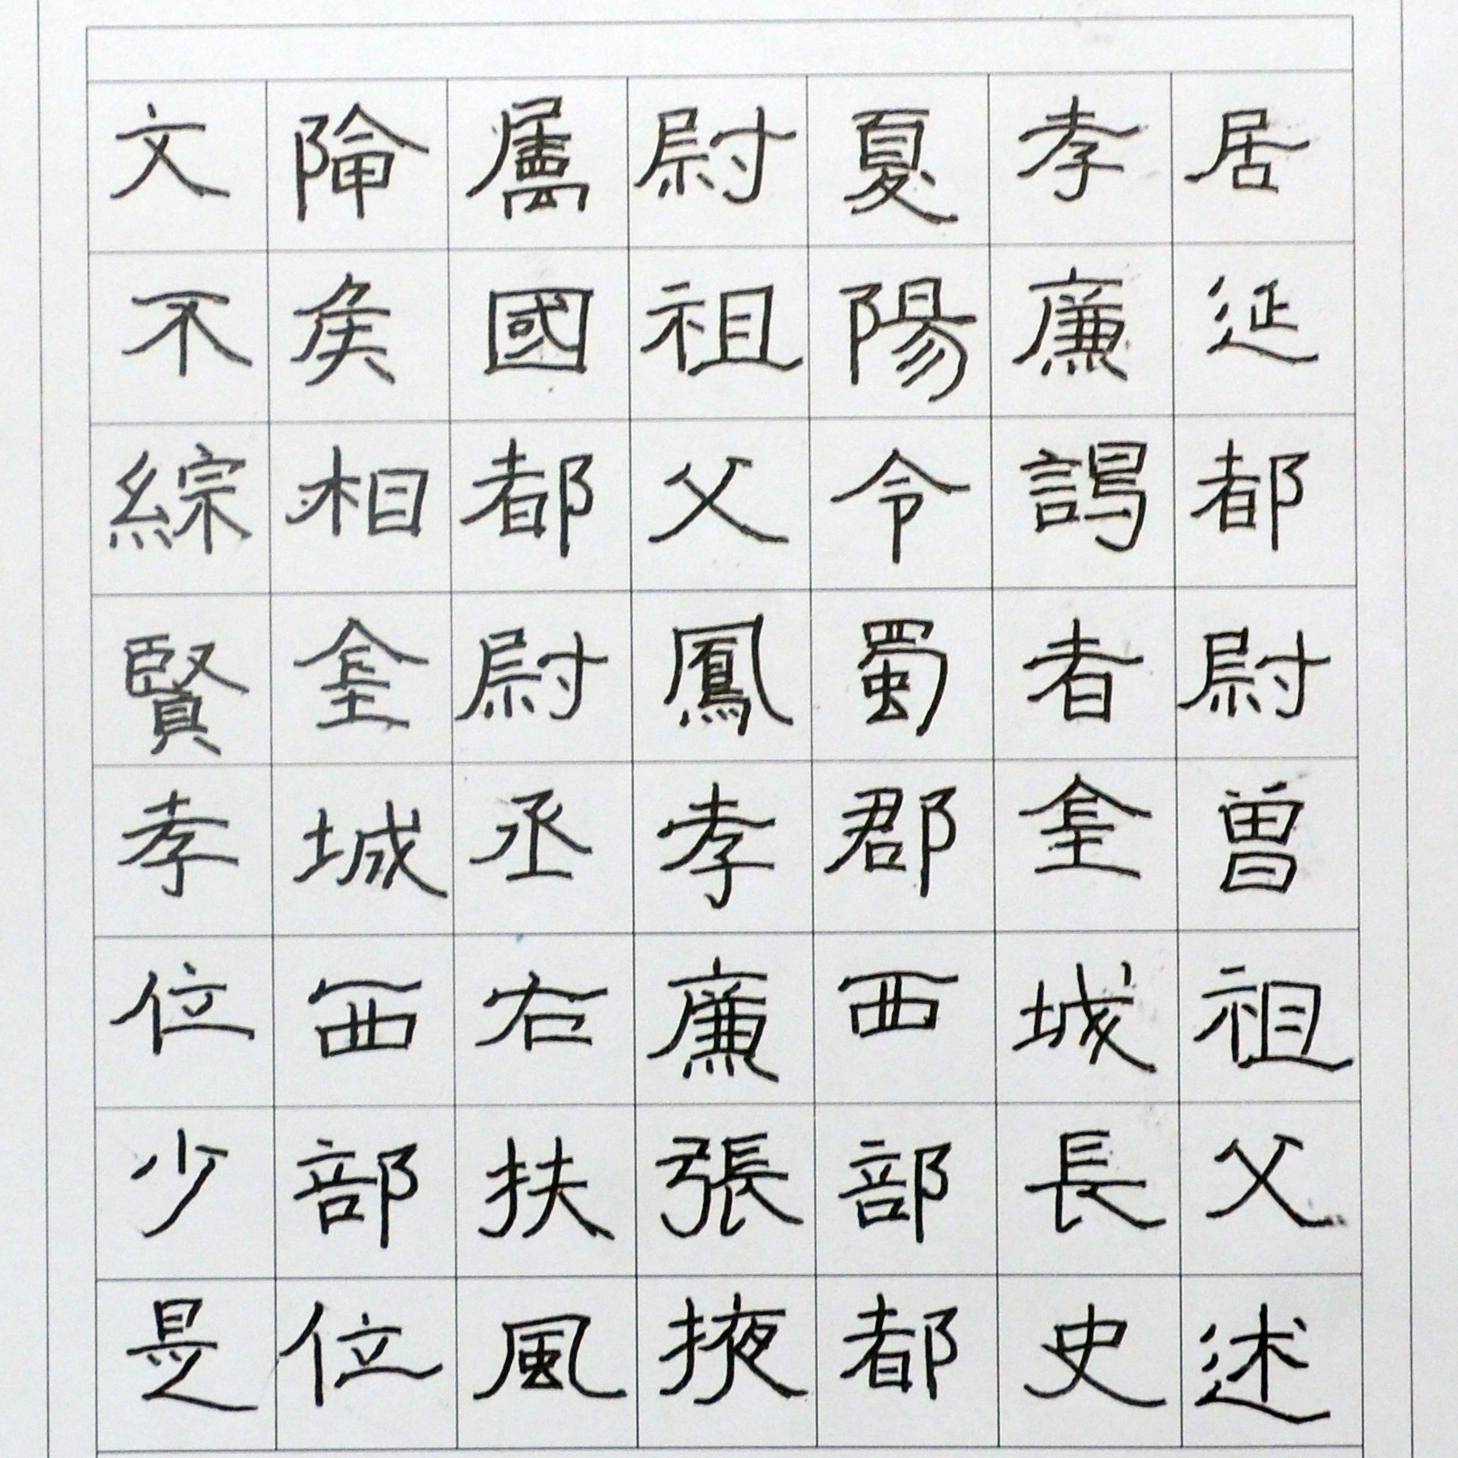 居延都尉曾祖父述
孝廉謁者金城長史
夏陽令蜀郡西部都
尉祖父鳳孝廉張掖
屬國都尉丞右扶風
隃麋侯相金城西部位
文不綜賢孝位少是